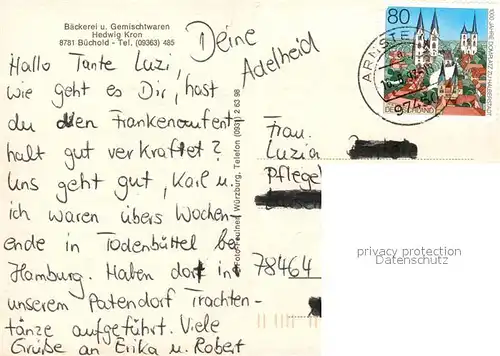 Bäckerei u. Gemischtwaren
Hedwig Kron
8781 Büchold - Tel. (09363) 485
Deine
Adelheid
Hallo Tante Luzi,
wie geht es Dir, hast
du den Frankenaufent-
halt gut verkraftet?
Uns geht gut, Karl u.
ich waren übers Wochen-
ende in Todenbüttel bei
Hamburg. Haben dort in
unserem Patendorf Trachten-
tänze aufgeführt. Viele
Grüße an Erika u. Robert
Würzburg, Telefon (0931) 2 83 98
80
DEUTSCHLAND
ARNSTEIN
97450
Frau
Luzia
Pflege
78464
privacy protection
Datenschutz